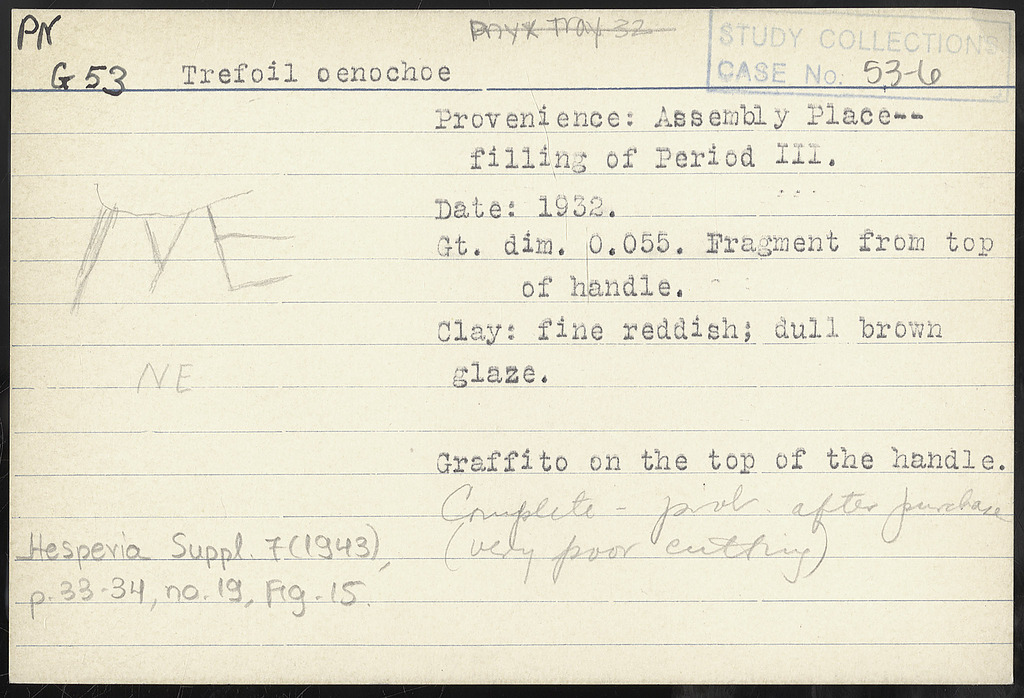 PN
Pnyx Tray 32
STUDY COLLECTIONS
CASE No: 53-6
G 53 Trefoil oenochoe
Provenience: Assembly Place--
filling of Period III.
Date: 1932.
Gt. dim. 0.055. Fragment from top
of handle.
Clay: fine reddish; dull brown
glaze.
NE
Graffito on the top of the handle.
Complete - prob. after purchase
(very poor cutting)
Hesperia Suppl. 7 (1943),
p. 33-34, no. 19, Fig. 15.